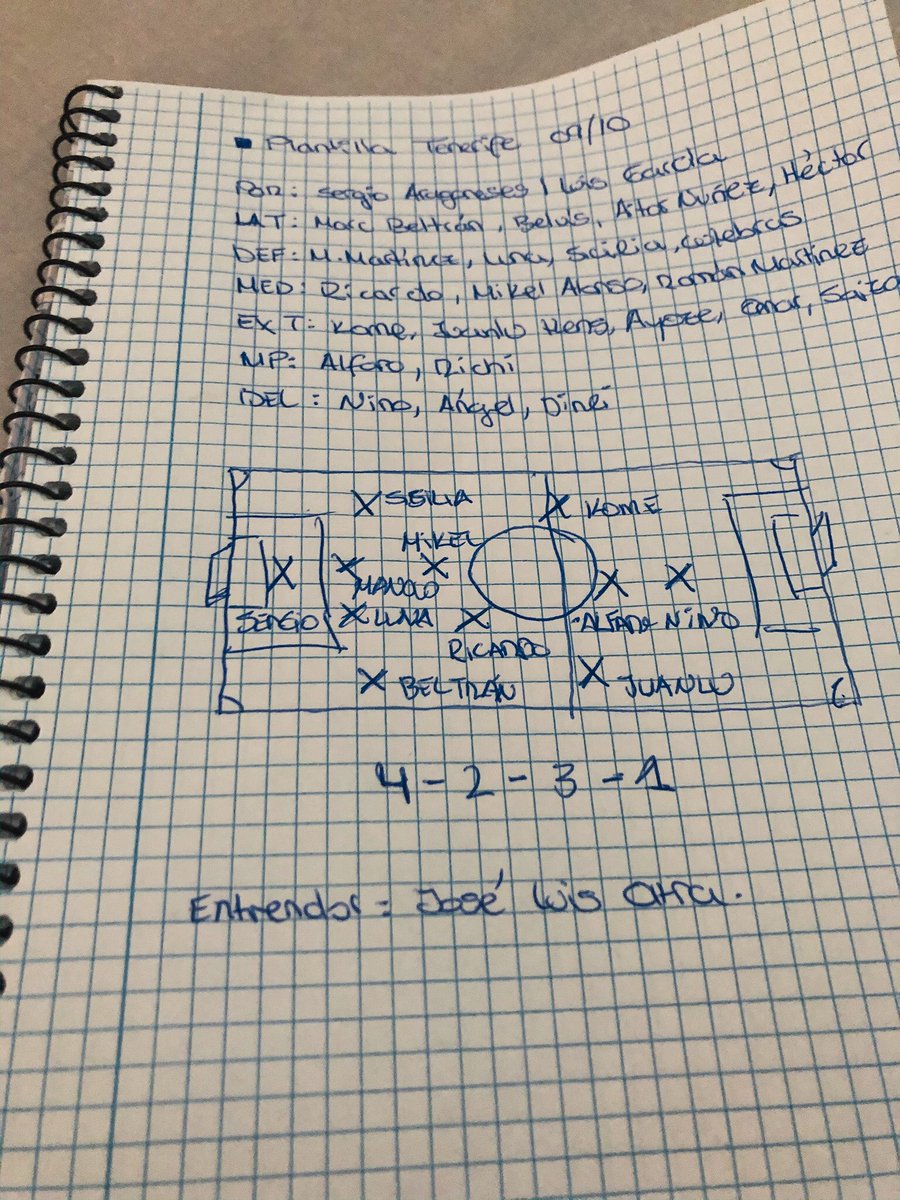 - Plantilla Tenerife 09/10
POR: Sergio Aragoneses / Luis García
LAT: Marc Beltrán, Belvis, Aitor Núñez, Héctor
DEF: M. Martínez, Luna, Sicilia, Culebras
MED: Ricardo, Mikel Alonso, Román Martínez
EXT: Kome, Juanlu Hens, Ayoze, Omar, Saito
MP: Alfaro, Richi
DEL: Nino, Ángel, Dinei
X SIILIA X KOME
MIKEL
X X X X
MANOLO
SERGIO X LUNA X ALFARO NINO
RICARDO
X BELTRÁN X JUANLU
4 - 2 - 3 - 1
Entrendor = José Luis Oltra.